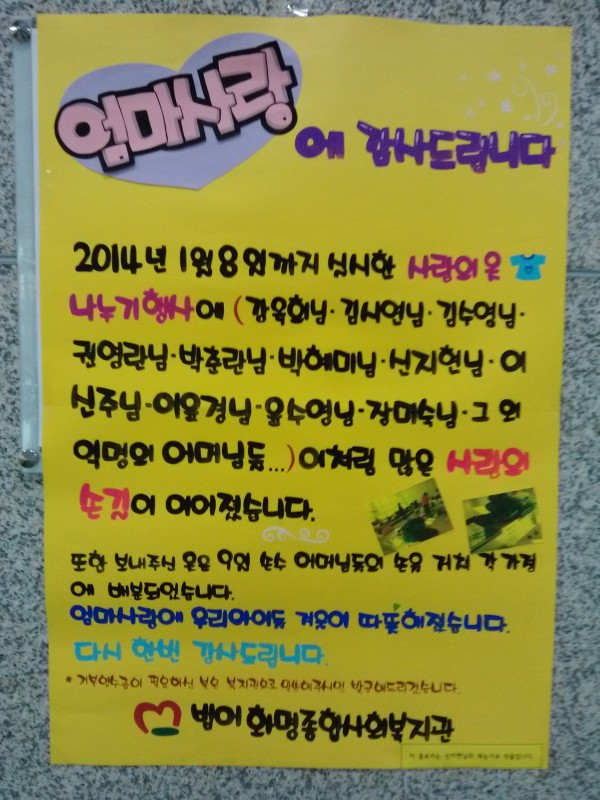 엄마사랑에 감사드립니다
2014년 1월 8일까지 실시한 사랑의 옷
나누기행사에 (강옥희님·김시연님·김수영님·
권영란님·박춘란님·박혜미님·신지현님·이
신주님·이윤경님·윤수영님·장미숙님·그 외
익명의 어머님들...)이처럼 많은 사랑의
손길이 이어졌습니다.
또한 보내주신 옷은 9일 손수 어머님들의 손을 거쳐 각 가정
에 배분되었습니다.
엄마사랑에 우리아이들 겨울이 따뜻해졌습니다.
다시 한번 감사드립니다.
* 기부영수증이 필요하신 분은 복지관으로 연락해주시면 발급해드리겠습니다.
밝은 화명종합사회복지관
이 홍보지는 신지현님의 재능기부 작품입니다.